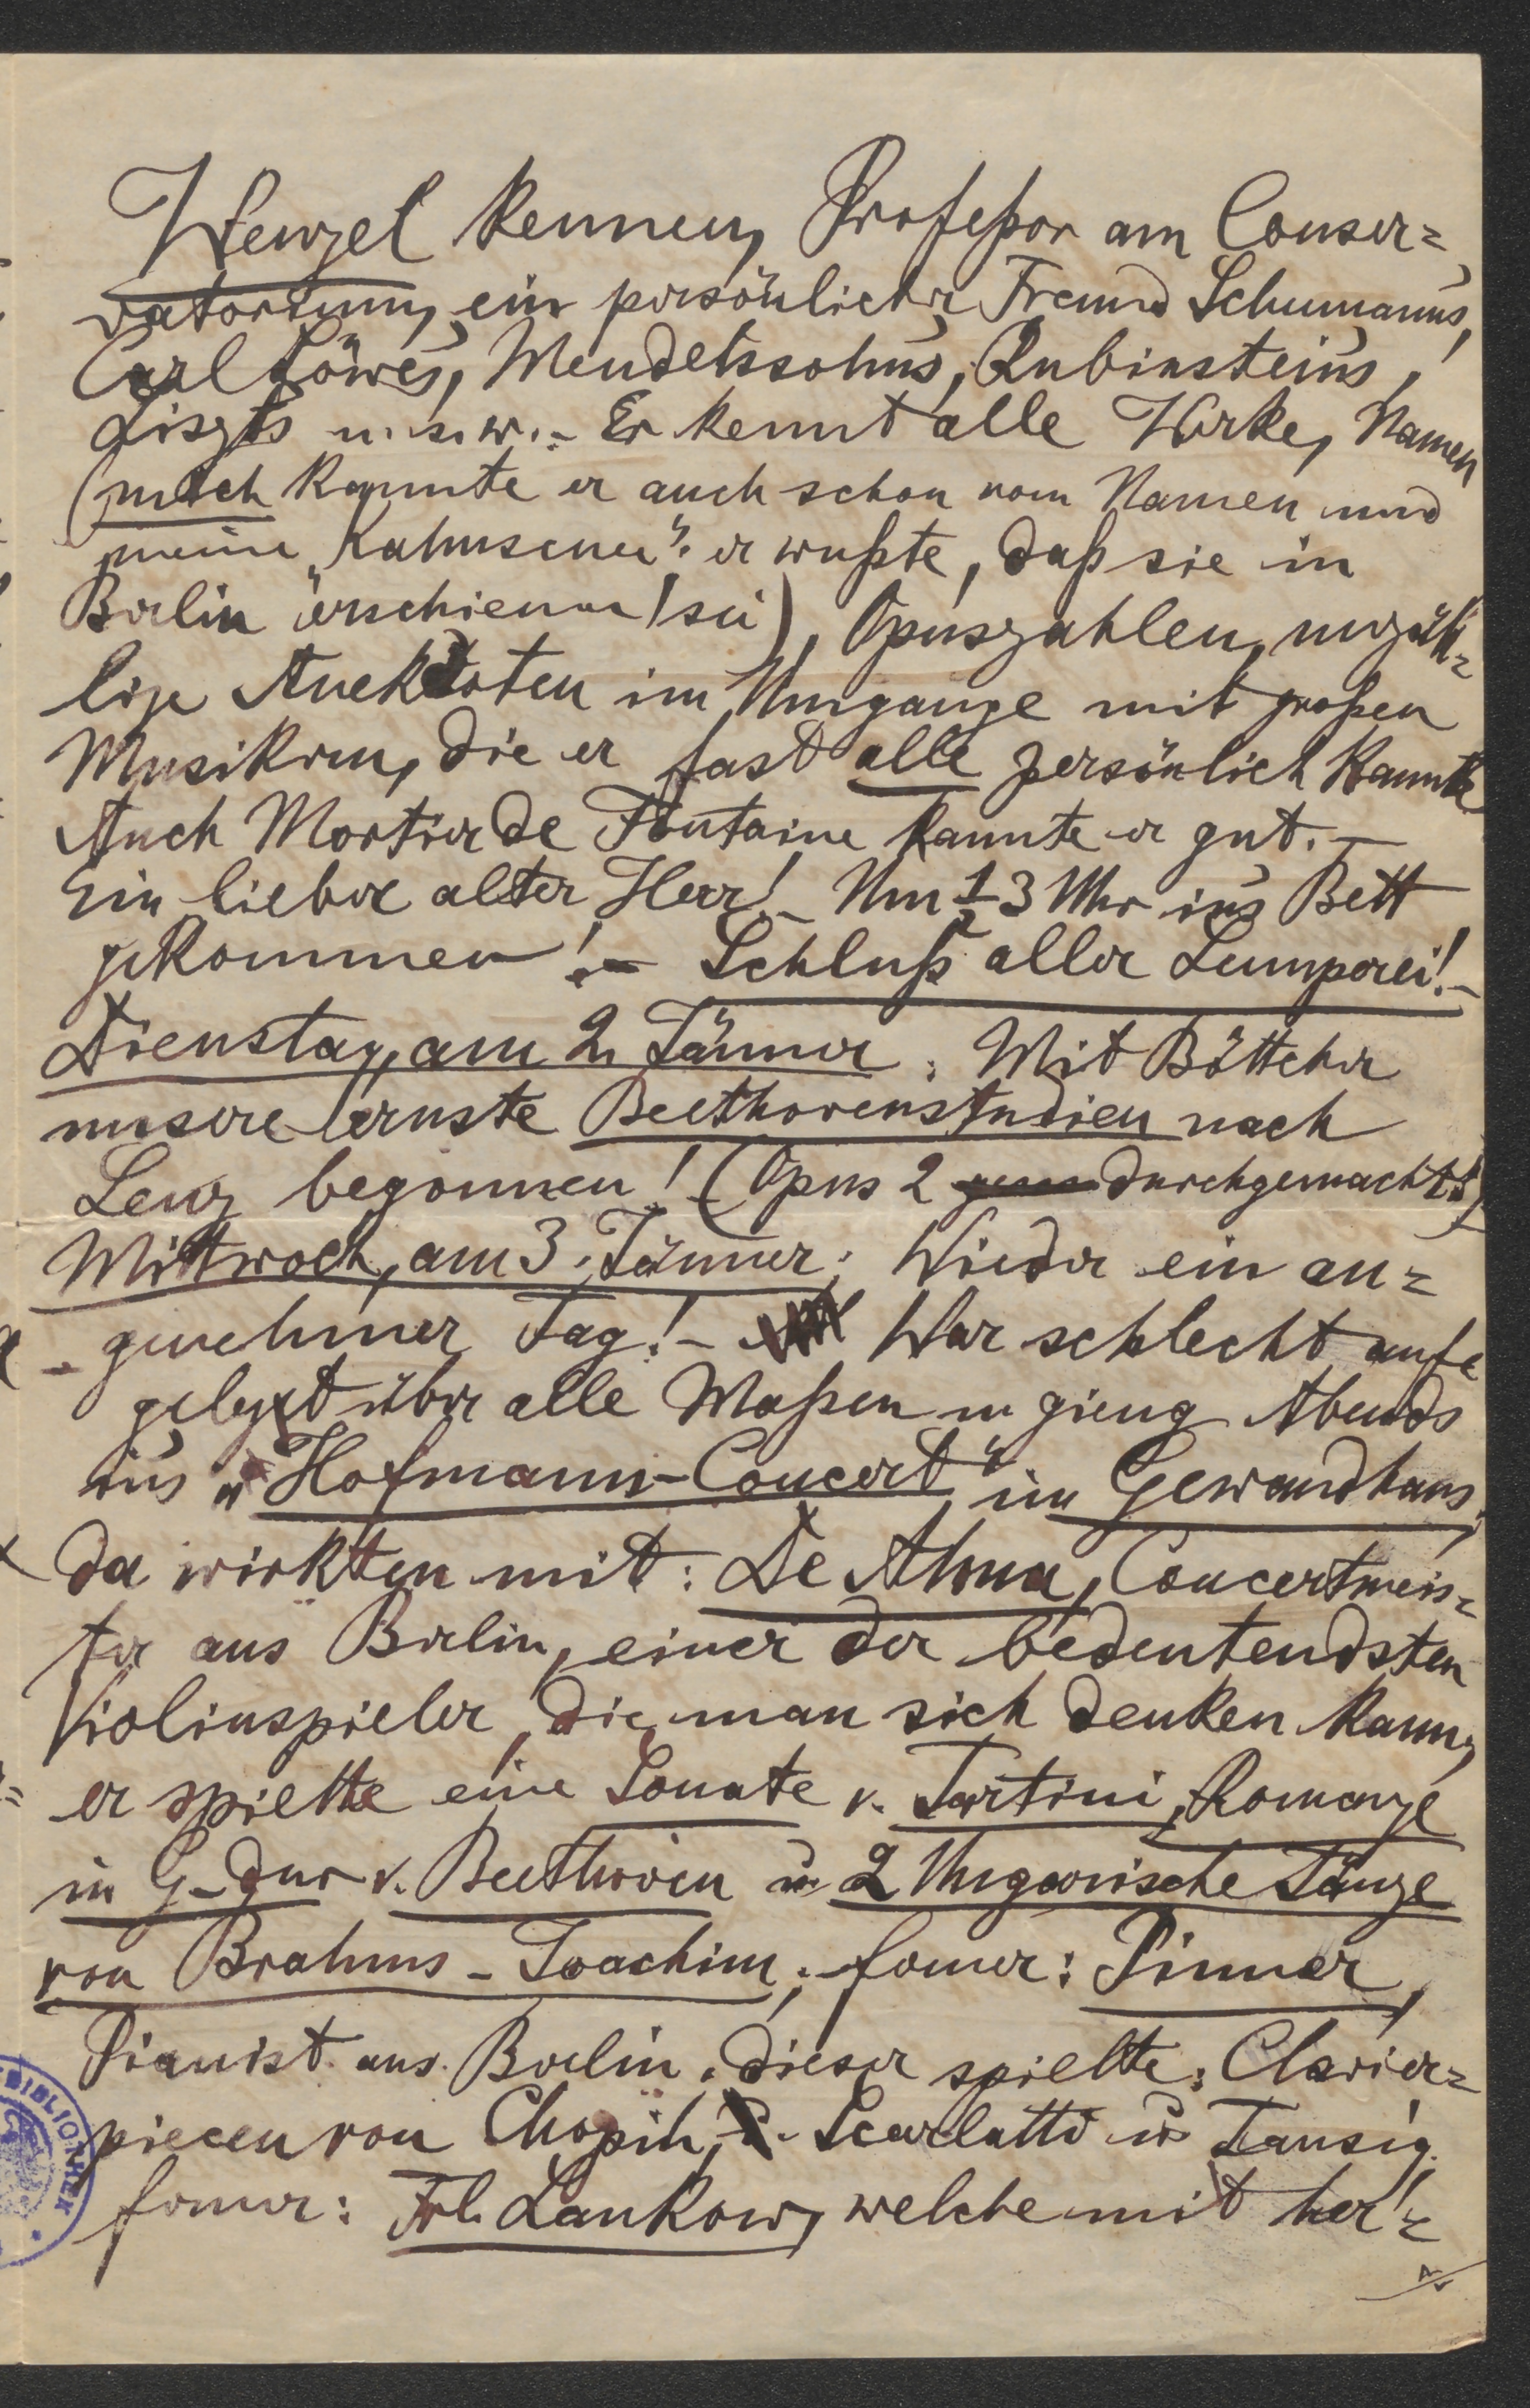 Wenzel kennen, Profeßor am Conser=
vatorium, ein persönlicher Freund Schumann's,
Carl Löwe's, Mendelssohn's, Rubinstein's,
Liszt's u. s. w. – Er kennt alle Werke, Namen
(mich kannte er auch schon vom Namen und
meine „Kahnscene“: er wußte, daß sie in
Berlin erschienen sei), Opuszahlen, unzäh=
lige Anekdoten im Umgange mit großen
Musikern, die er fast alle persönlich kannte
Auch Mortier de Fontaine kannte er gut. –
Ein lieber alter Herr! – Um ½3 Uhr in's Bett
gekommen! – Schluß aller Lumperei! –
Dienstag, am 2. Jänner. Mit Böttcher
unsere ernste Beethovenstudien nach
Lenz begonnen! (Opus 2 durchgemacht!)
Mittwoch, am 3. Jänner: Wieder ein an=
genehmer Tag! – War schlecht auf=
gelegt über alle Maßen u gieng Abends
in's „Hofmann-Concert“ im Gewandhaus,
da wirkten mit: De Ahna, Concertmeis=
ter aus Berlin, einer der bedeutendsten
Violinspieler, die man sich denken kann,
er spielte eine Sonate v. Tartini, Romanze
in G-dur v. Beethoven u. 2 Ungarische Tänze
von Brahms-Joachim; ferner: Pinner,
Pianist aus Berlin, dieser spielte: Clavier=
piecen von Chopin, Scarlatti u. Tausig.
ferner: Frl. Lankow, welche mit herr=
BIBLIOTHEK